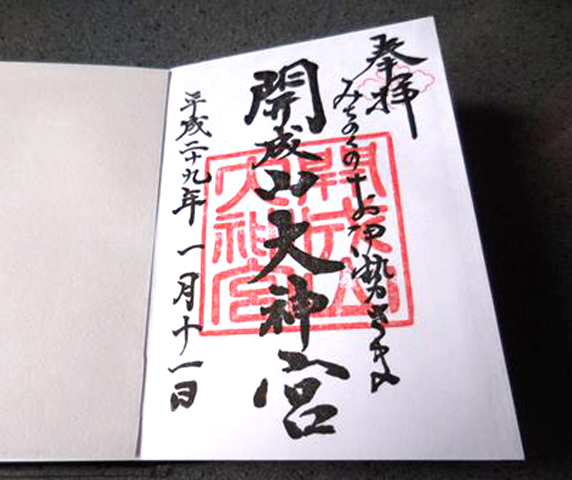 奉拝
みちのくのお伊勢さま
開成山大神宮
平成二十九年一月十一日
開成山
大神宮